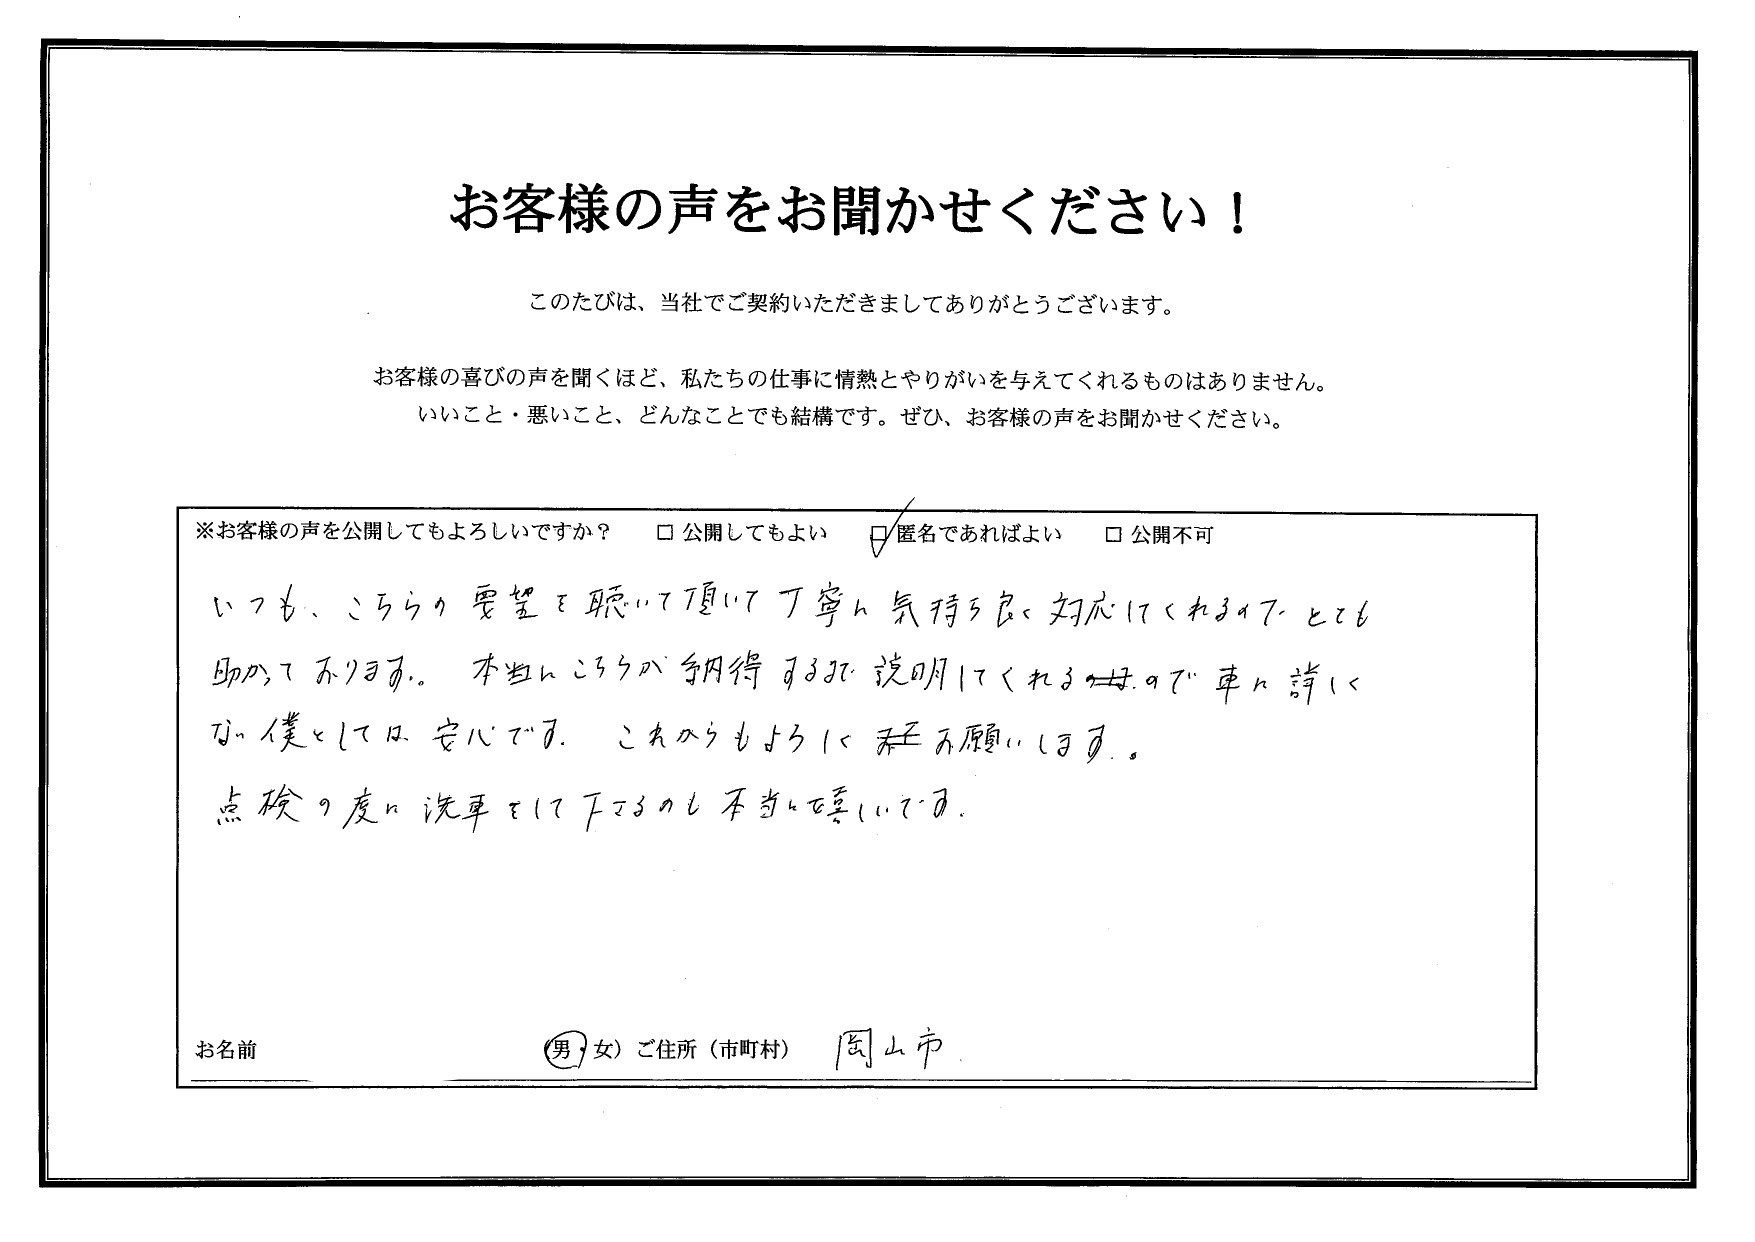 お客様の声をお聞かせください！
このたびは、当社でご契約いただきましてありがとうございます。
お客様の喜びの声を聞くほど、私たちの仕事に情熱とやりがいを与えてくれるものはありません。
いいこと・悪いこと、どんなことでも結構です。ぜひ、お客様の声をお聞かせください。
※お客様の声を公開してもよろしいですか？ □ 公開してもよい □ 匿名であればよい □ 公開不可
いつも、こちらの要望を聴いて頂いて丁寧に気持ち良く対応してくれるので とても
助かっております。 本当にこちらが納得するまで説明してくれるので車に詳しく
ない僕としては安心です。 これからもよろしくお願いします。
点検の度に洗車をして下さるのも本当に嬉しいです。
お名前 (男・女） ご住所（市町村） 岡山市